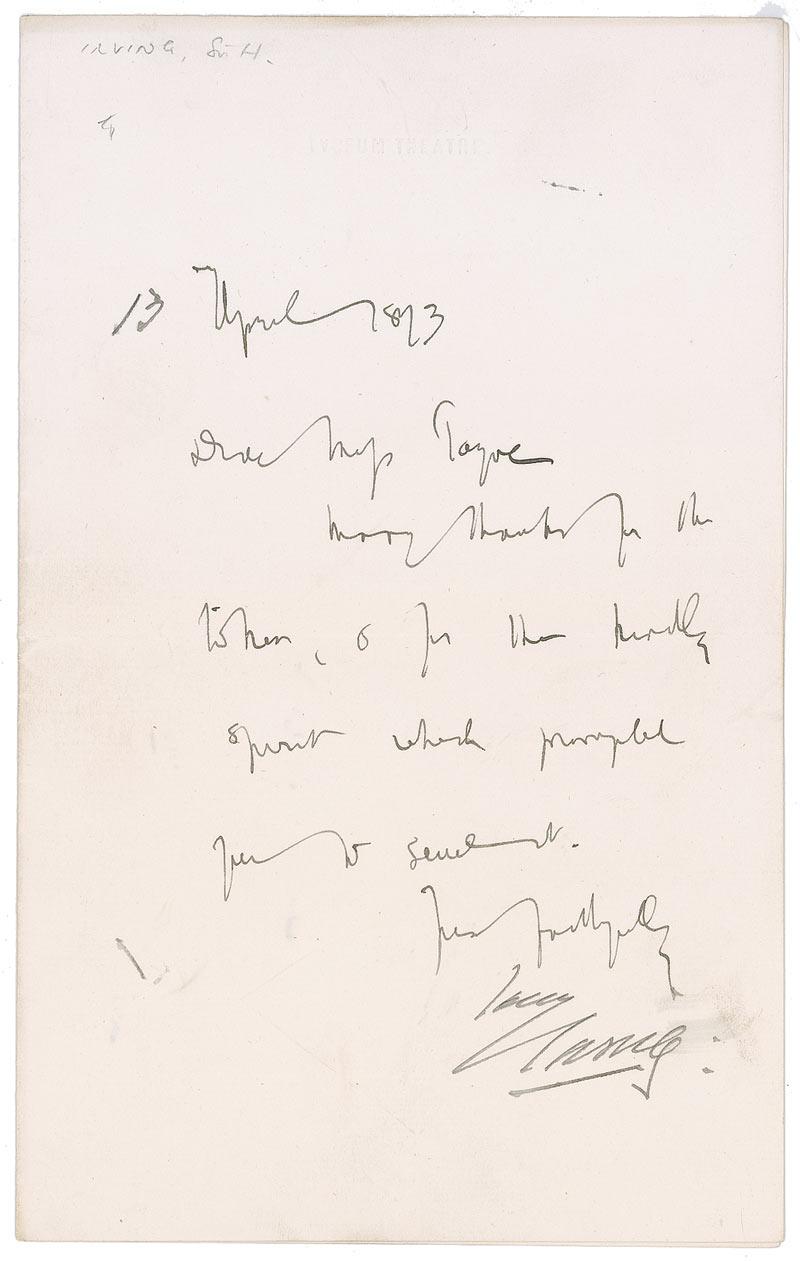 IRVING, Sir H.
LYCEUM THEATRE.
13 April 1893
Dear Miss
Many thanks for the
token, & for the kindly
spirit which prompted
you to send it.
Yrs faithfully
Henry
Irving